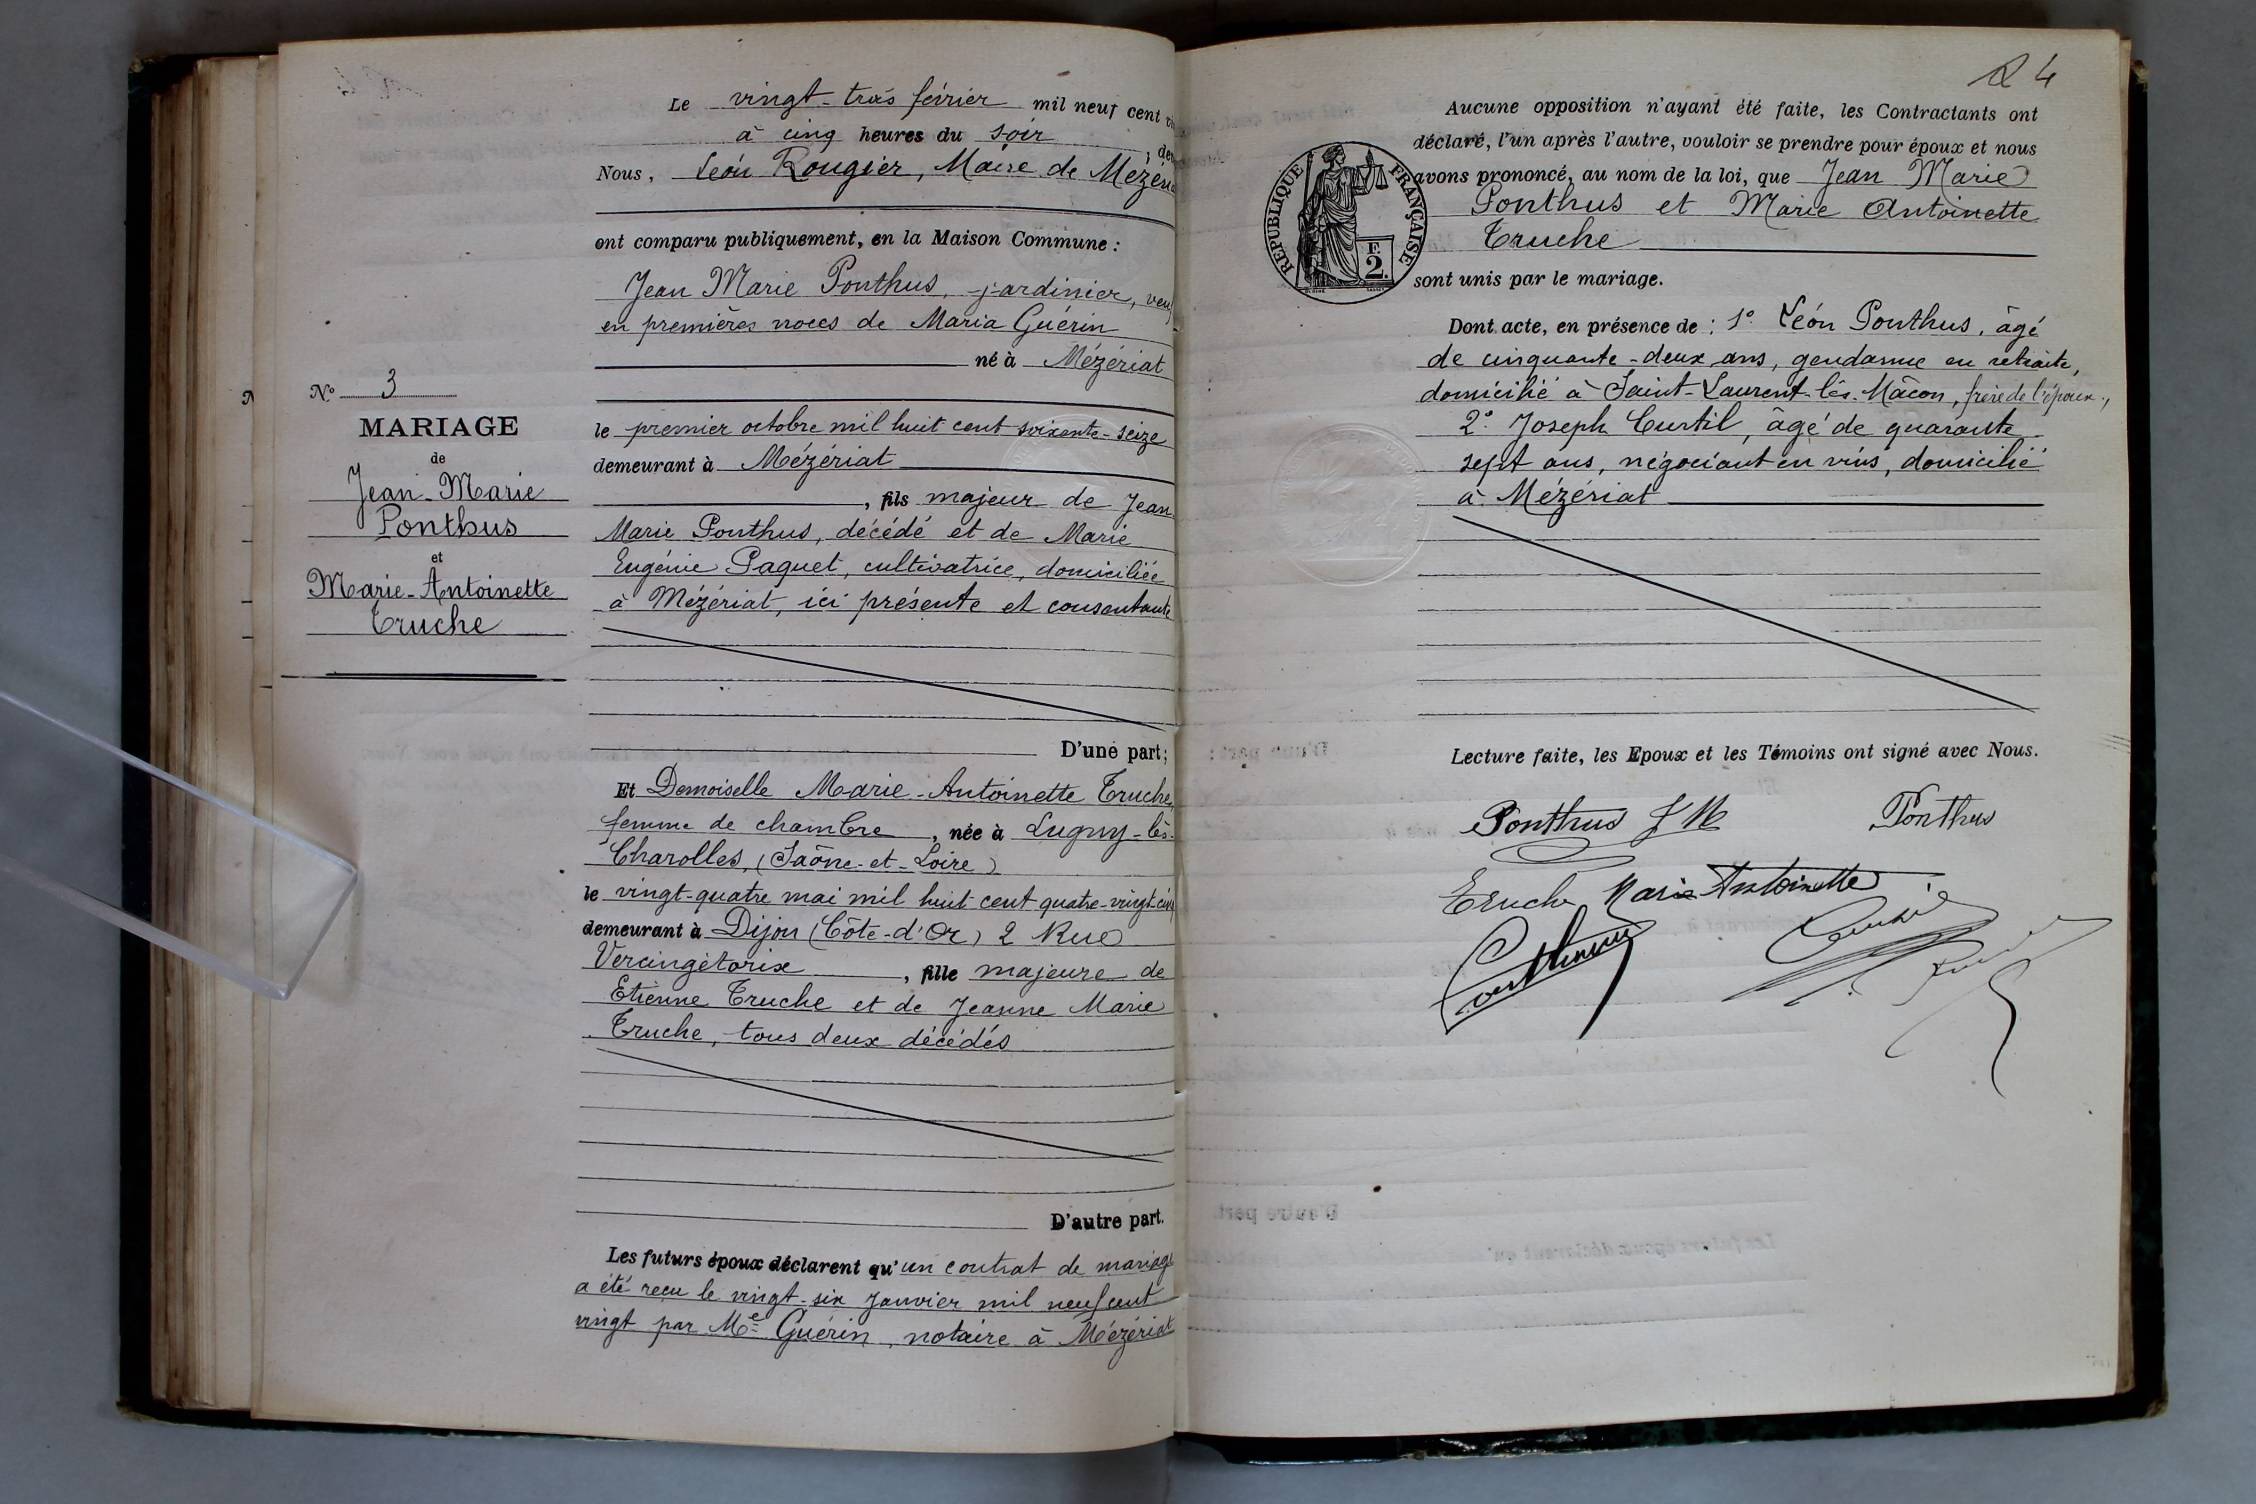 Le vingt-trois février mil neuf cent
à cinq heures du soir ;
Nous, Léon Rougier, Maire de Mézér
ont comparu publiquement, en la Maison Commune :
Jean Marie Ponthus, jardinier, veuf
en premières noces de Maria Guérin
né à Mézériat
le premier octobre mil huit cent soixante-seize
demeurant à Mézériat
, fils majeur de Jean
Marie Ponthus, décédé et de Marie
Eugénie Paquet, cultivatrice, domiciliée
à Mézériat, ici présente et consentante
D'une part;
Et Demoiselle Marie-Antoinette Truche,
femme de chambre, née à Lugny-lès-
Charolles, (Saône-et-Loire)
le vingt-quatre mai mil huit cent quatre-vingt-cinq
demeurant à Dijon (Côte-d'Or) 2 Rue
Vercingétorix, fille majeure de
Etienne Truche et de Jeanne Marie
Truche, tous deux décédés
D'autre part.
Les futurs époux déclarent qu'un contrat de mariage
a été reçu le vingt-six janvier mil neuf cent
vingt par Me Guérin, notaire à Mézériat
N° 3
MARIAGE
de
Jean-Marie
Ponthus
et
Marie-Antoinette
Truche
4
Aucune opposition n'ayant été faite, les Contractants ont
déclaré, l'un après l'autre, vouloir se prendre pour époux et nous
avons prononcé, au nom de la loi, que Jean Marie
Ponthus et Marie Antoinette
Truche
sont unis par le mariage.
RÉPUBLIQUE FRANÇAISE
F.
2.
Dont acte, en présence de : 1° Léon Ponthus, âgé
de cinquante-deux ans, gendarme en retraite,
domicilié à Saint-Laurent-lès-Mâcon, frère de l'époux,
2° Joseph Curtil, âgé de quarante
sept ans, négociant en vins, domicilié
à Mézériat
Lecture faite, les Epoux et les Témoins ont signé avec Nous.
Ponthus J M
Ponthus
Truche Marie Antoinette